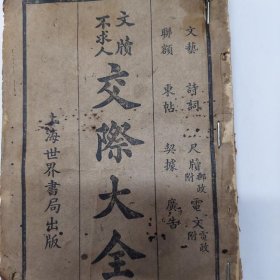 文藝 詩詞 尺牘 附郵政 電文 附電政
聯額 柬帖 契據 廣告
文牘不求人
交際大全
上海世界書局出版